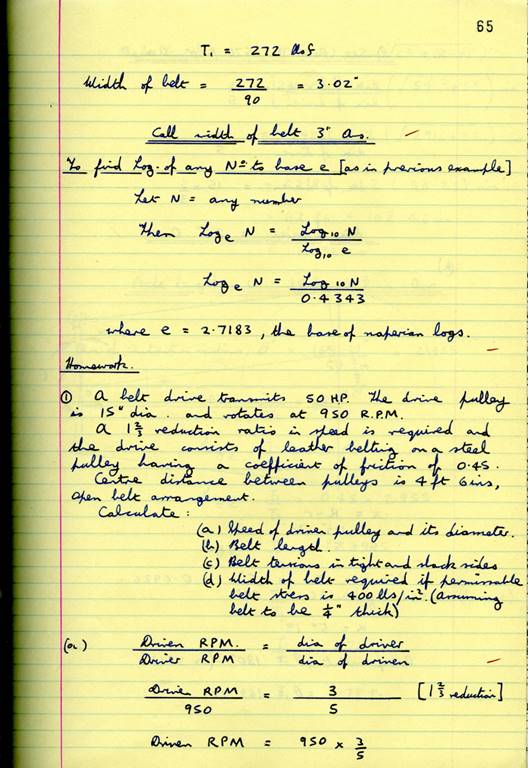 65
T₁ = 272 lbs f
Width of belt = 272/90 = 3.02"
Call width of belt 3" Ans.
To find Log. of any Nº to base e [as in previous example]
Let N = any number
Then Logₑ N = Log₁₀ N / Log₁₀ e
Logₑ N = Log₁₀ N / 0.4343
where e = 2.7183, the base of naperian logs.
Homework.
① A belt drive transmits 50 HP. The drive pulley
is 15" dia. and rotates at 950 R.P.M.
A 1⅔ reduction ratio in speed is required and
the drive consists of leather belting on a steel
pulley having a coefficient of friction of 0.45.
Centre distance between pulleys is 4 ft 6 ins,
open belt arrangement.
Calculate:
(a) Speed of driven pulley and its diameter.
(b) Belt length.
(c) Belt tensions in tight and slack sides
(d) Width of belt required if permissable
belt stress is 400 lbs/in². (assuming
belt to be ¼" thick)
(a) Driven RPM. / Driver RPM = dia of driver / dia of driven
Driven RPM / 950 = 3 / 5 [1⅔ reduction]
Driven RPM = 950 × 3/5